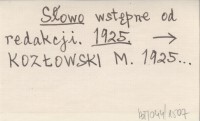 Słowo wstępne od
redakcji. 1925. →
KOZŁOWSKI M. 1925...